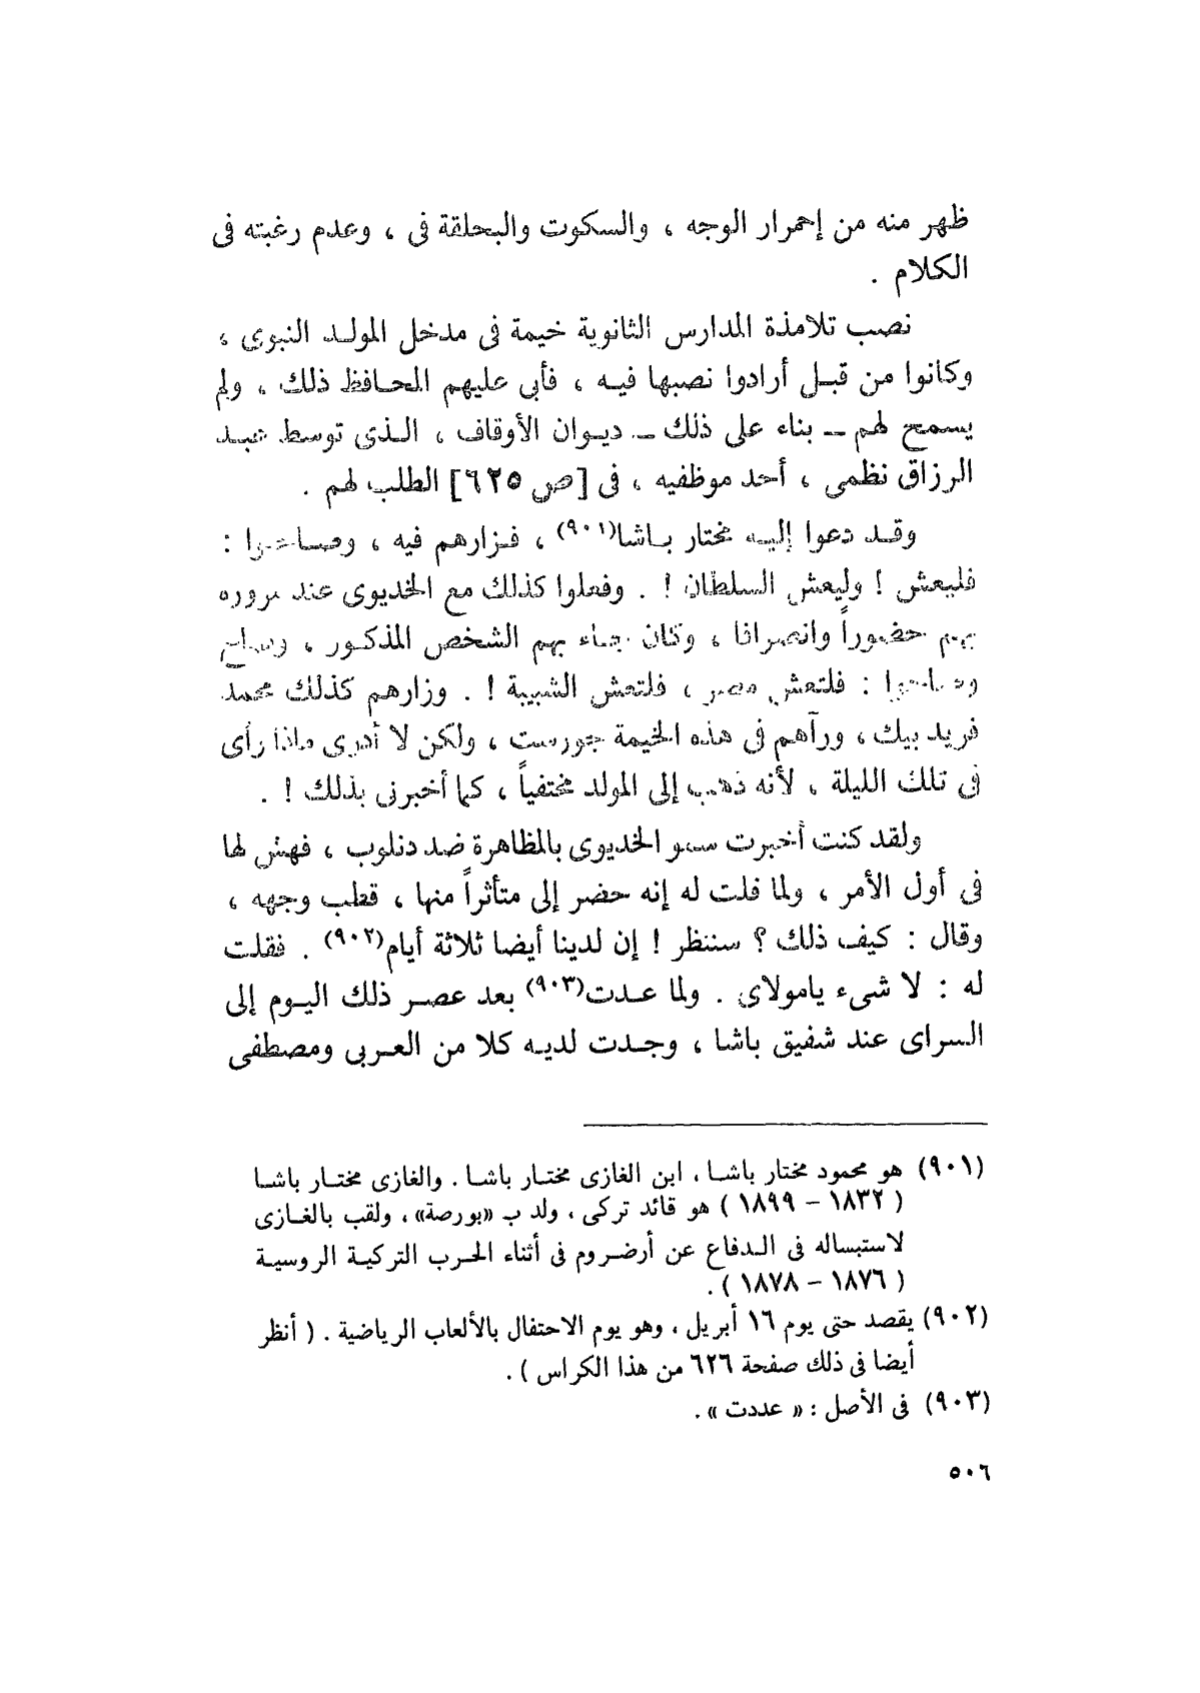 ظهر منه من إحمرار الوجه ، والسكوت والبحلقة فى ، وعدم رغبته فى
الكلام .
نصب تلامذة المدارس الثانوية خيمة فى مدخل المولد النبوى ،
وكانوا من قبل أرادوا نصبها فيه ، فأبى عليهم المحافظ ذلك ، ولم
يسمح لهم ــ بناء على ذلك ــ ديوان الأوقاف ، الذى توسط عبد
الرزاق نظمى ، أحد موظفيه ، فى [ص ٦٢٥] الطلب لهم .
وقد دعوا إليه مختار باشا(٩٠١) ، فزارهم فيه ، وصاحوا :
فليعش ! وليعش السلطان ! . وفعلوا كذلك مع الخديوى عند مروره
بهم حضوراً وانصرافا ، وكان جاء بهم الشخص المذكور ،
وصاحوا : فلتعش مصر ، فلتعش الشبيبة ! . وزارهم كذلك محمد
فريد بيك ، ورآهم فى هذه الخيمة جورست ، ولكن لا أدرى ماذا رأى
فى تلك الليلة ، لأنه ذهب إلى المولد مختفياً ، كما أخبرنى بذلك ! .
ولقد كنت أخبرت سمو الخديوى بالمظاهرة ضد دنلوب ، فهش لها
فى أول الأمر ، ولما قلت له إنه حضر إلى متأثراً منها ، قطب وجهه ،
وقال : كيف ذلك ؟ سننظر ! إن لدينا أيضا ثلاثة أيام(٩٠٢) . فقلت
له : لا شىء يامولاى . ولما عدت(٩٠٣) بعد عصر ذلك اليوم إلى
السراى عند شفيق باشا ، وجدت لديه كلا من العربى ومصطفى
(٩٠١) هو محمود مختار باشا ، ابن الغازى مختار باشا . والغازى مختار باشا
( ١٨٣٢ – ١٨٩٩ ) هو قائد تركى ، ولد ب «بورصة» ، ولقب بالغازى
لاستبساله فى الدفاع عن أرضروم فى أثناء الحرب التركية الروسية
( ١٨٧٦ – ١٨٧٨ ) .
(٩٠٢) يقصد حتى يوم ١٦ أبريل ، وهو يوم الاحتفال بالألعاب الرياضية . ( أنظر
أيضا فى ذلك صفحة ٦٢٦ من هذا الكراس ) .
(٩٠٣) فى الأصل : « عددت » .
٥٠٦